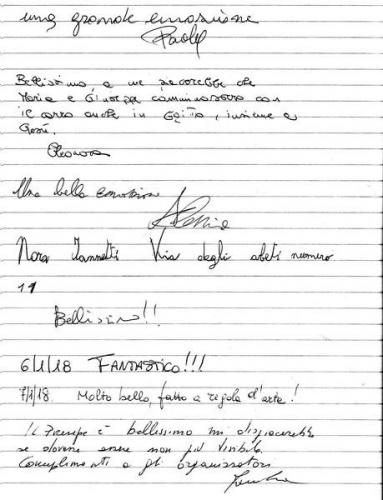 una grande emozione
Paola
Bellissimo a me piacerebbe che
Maria e Giuseppe camminassero con
il carro anche in Egitto, insieme a
Gesù.
Eleonora
Una bella emozione
Nora Iannetti Via degli abeti numero
11
Bellissimo!!
6/1/18 FANTASTICO!!!
7/1/18 Molto bello, fatto a regola d'arte!
Il Presepe è bellissimo mi dispiacerebbe
se dovesse essere non più visibile.
Complimenti a gli organizzatori